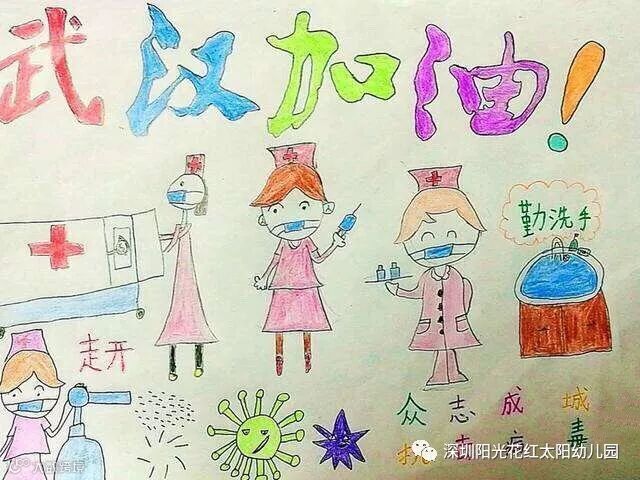 武汉加油!
勤洗手
走开
众志成城
抗击病毒
深圳阳光花红太阳幼儿园